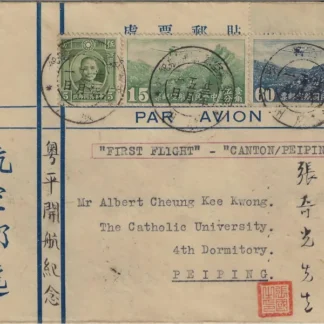 處票郵貼
5
15
60
PAR AVION
"FIRST FLIGHT" - "CANTON/PEIPIN
Mr Albert Cheung Kee Kwong.
The Catholic University.
4th Dormitory.
PEIPING.
張奇光先生
粤平開航紀念
航空郵遞